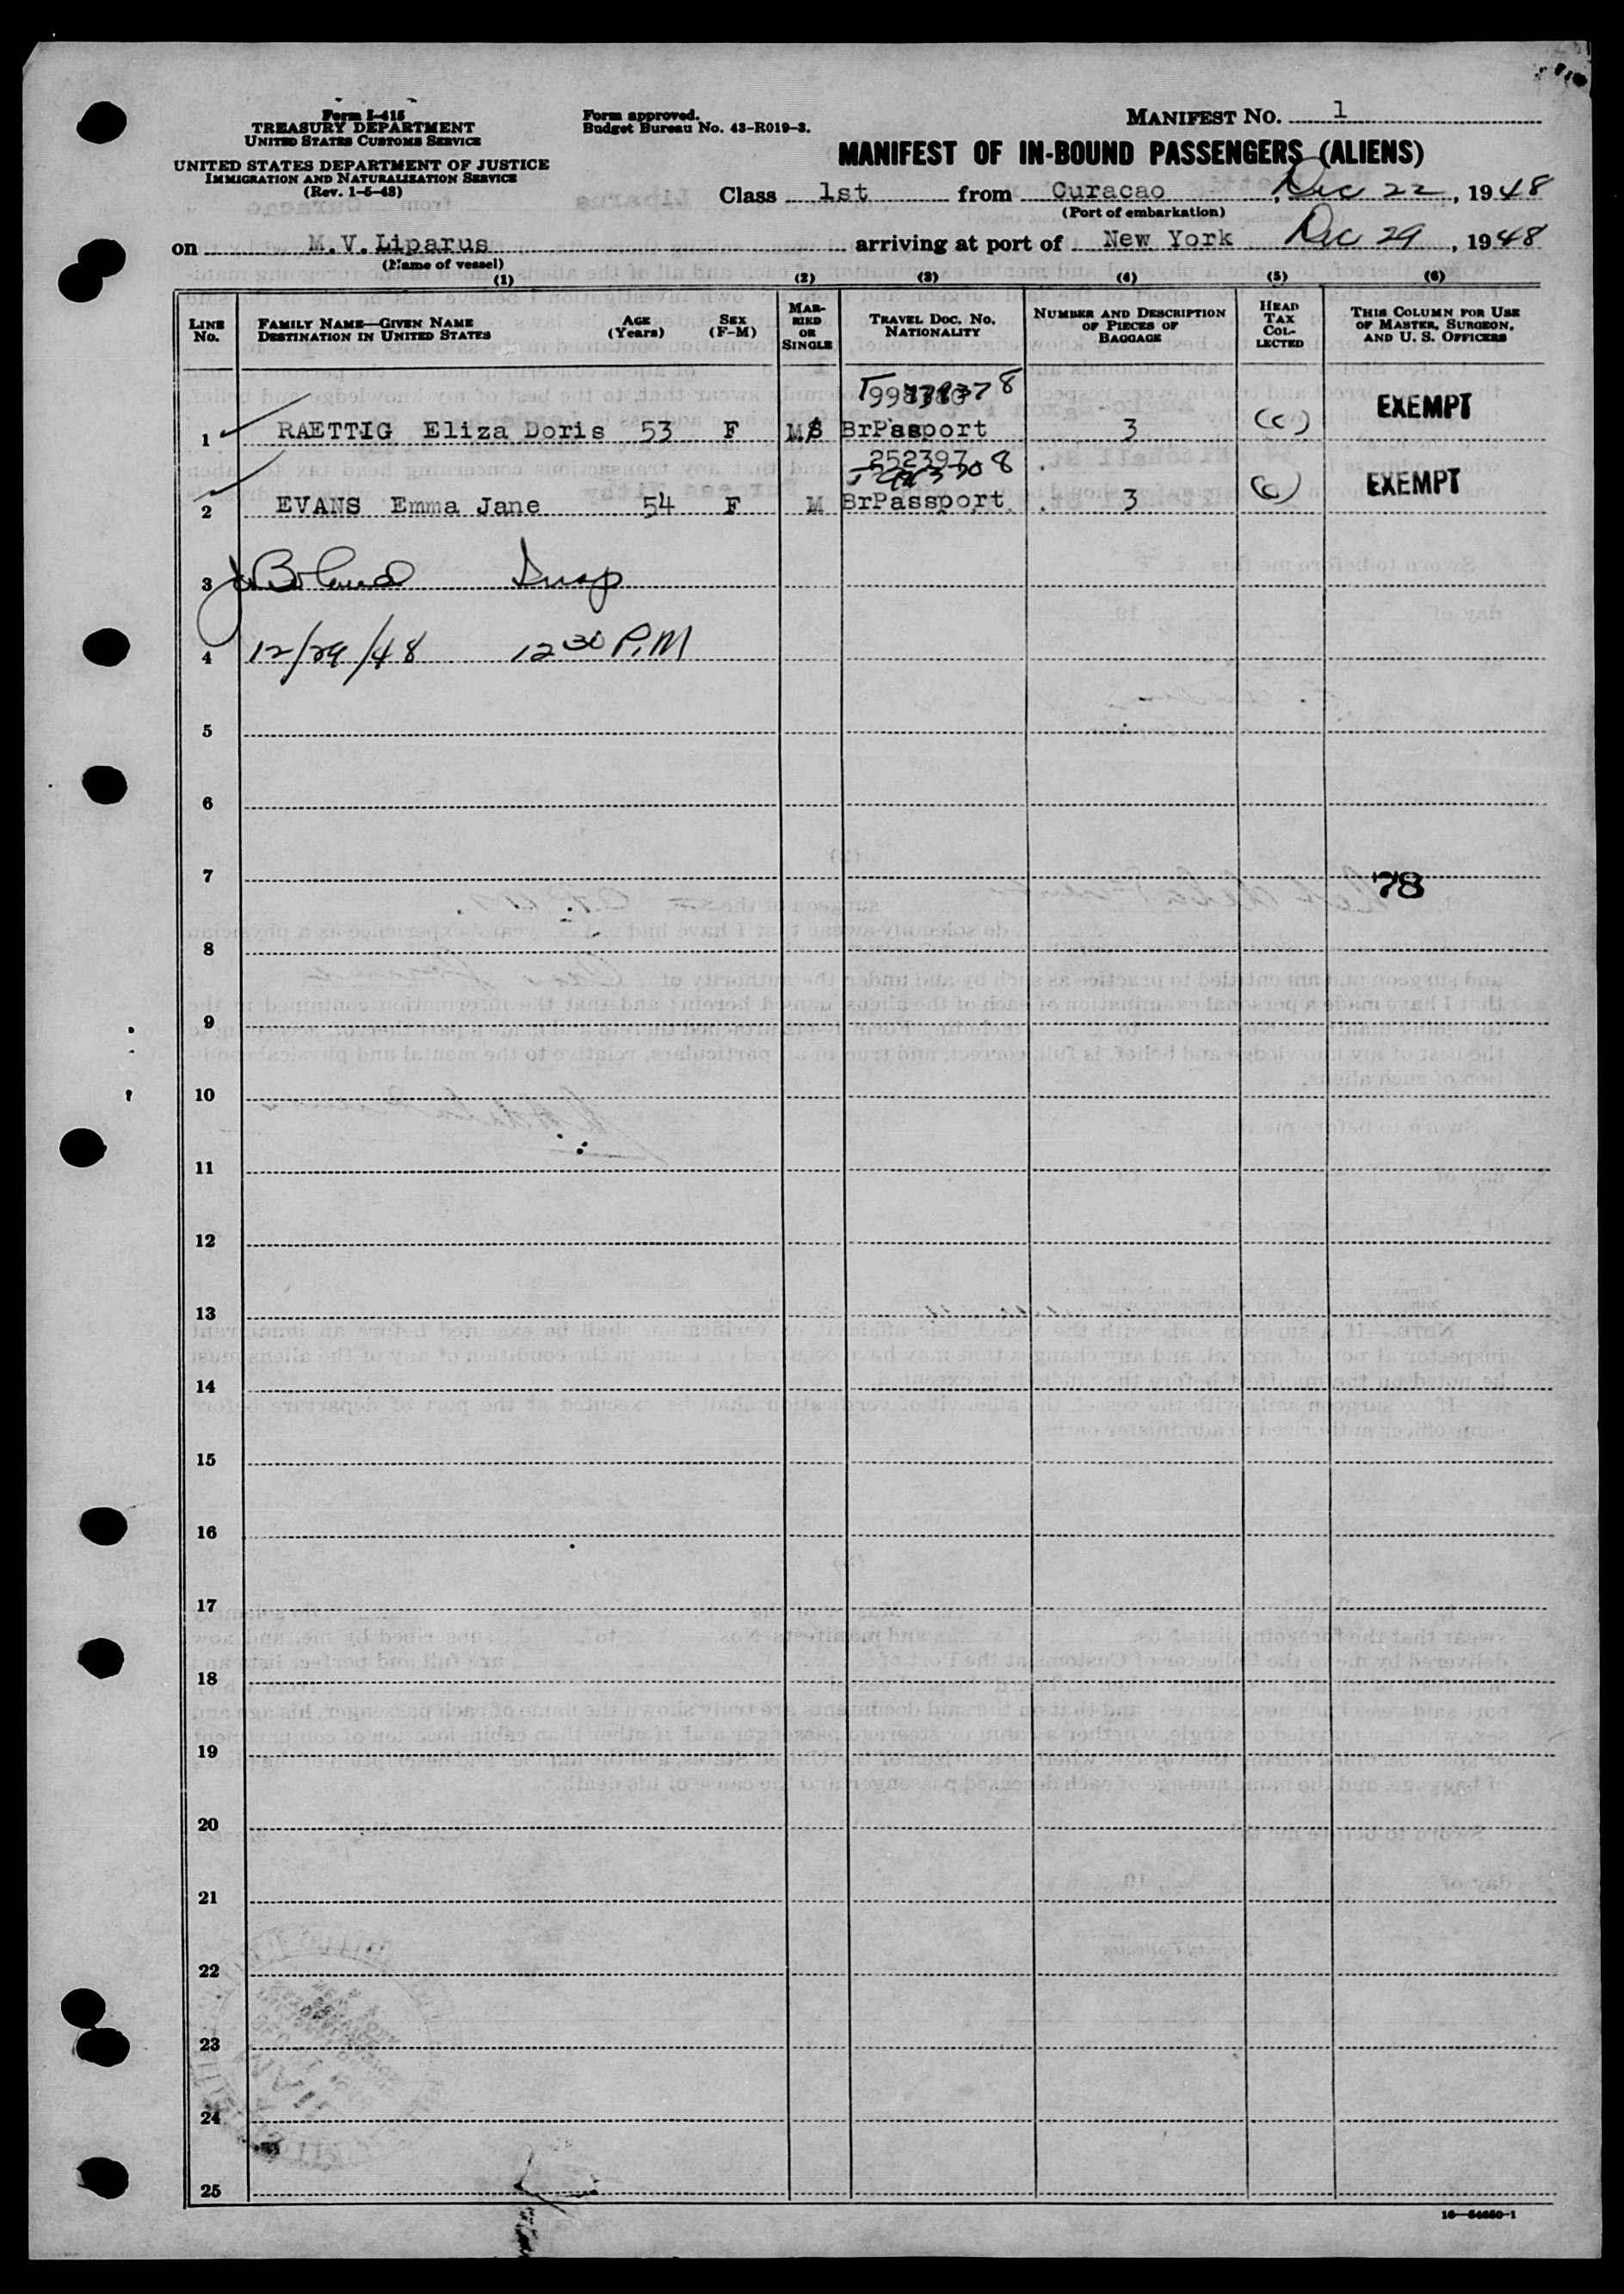 Form I-415
TREASURY DEPARTMENT
UNITED STATES CUSTOMS SERVICE
UNITED STATES DEPARTMENT OF JUSTICE
IMMIGRATION AND NATURALIZATION SERVICE
(Rev. 1-5-48)
Form approved.
Budget Bureau No. 43-R019-3.
MANIFEST NO. 1
MANIFEST OF IN-BOUND PASSENGERS (ALIENS)
Class 1st from Curacao, Dec 22, 1948
(Port of embarkation)
on M.V. Liparus arriving at port of New York Dec 29, 1948
(Name of vessel)
(1) (2) (3) (4) (5) (6)
LINE NO.
FAMILY NAME—GIVEN NAME
DESTINATION IN UNITED STATES
AGE (Years)
SEX (F-M)
MARRIED OR SINGLE
TRAVEL DOC. NO.
NATIONALITY
NUMBER AND DESCRIPTION OF PIECES OF BAGGAGE
HEAD TAX COLLECTED
THIS COLUMN FOR USE OF MASTER, SURGEON, AND U. S. OFFICERS
1 RAETTIG Eliza Doris 53 F M S BrPassport 3 (c) EXEMPT
252397
2 EVANS Emma Jane 54 F M BrPassport 3 (c) EXEMPT
3 Insp
4 12/29/48 12 30 P.M
5
6
7 78
8
9
10
11
12
13
14
15
16
17
18
19
20
21
22
23
24
25